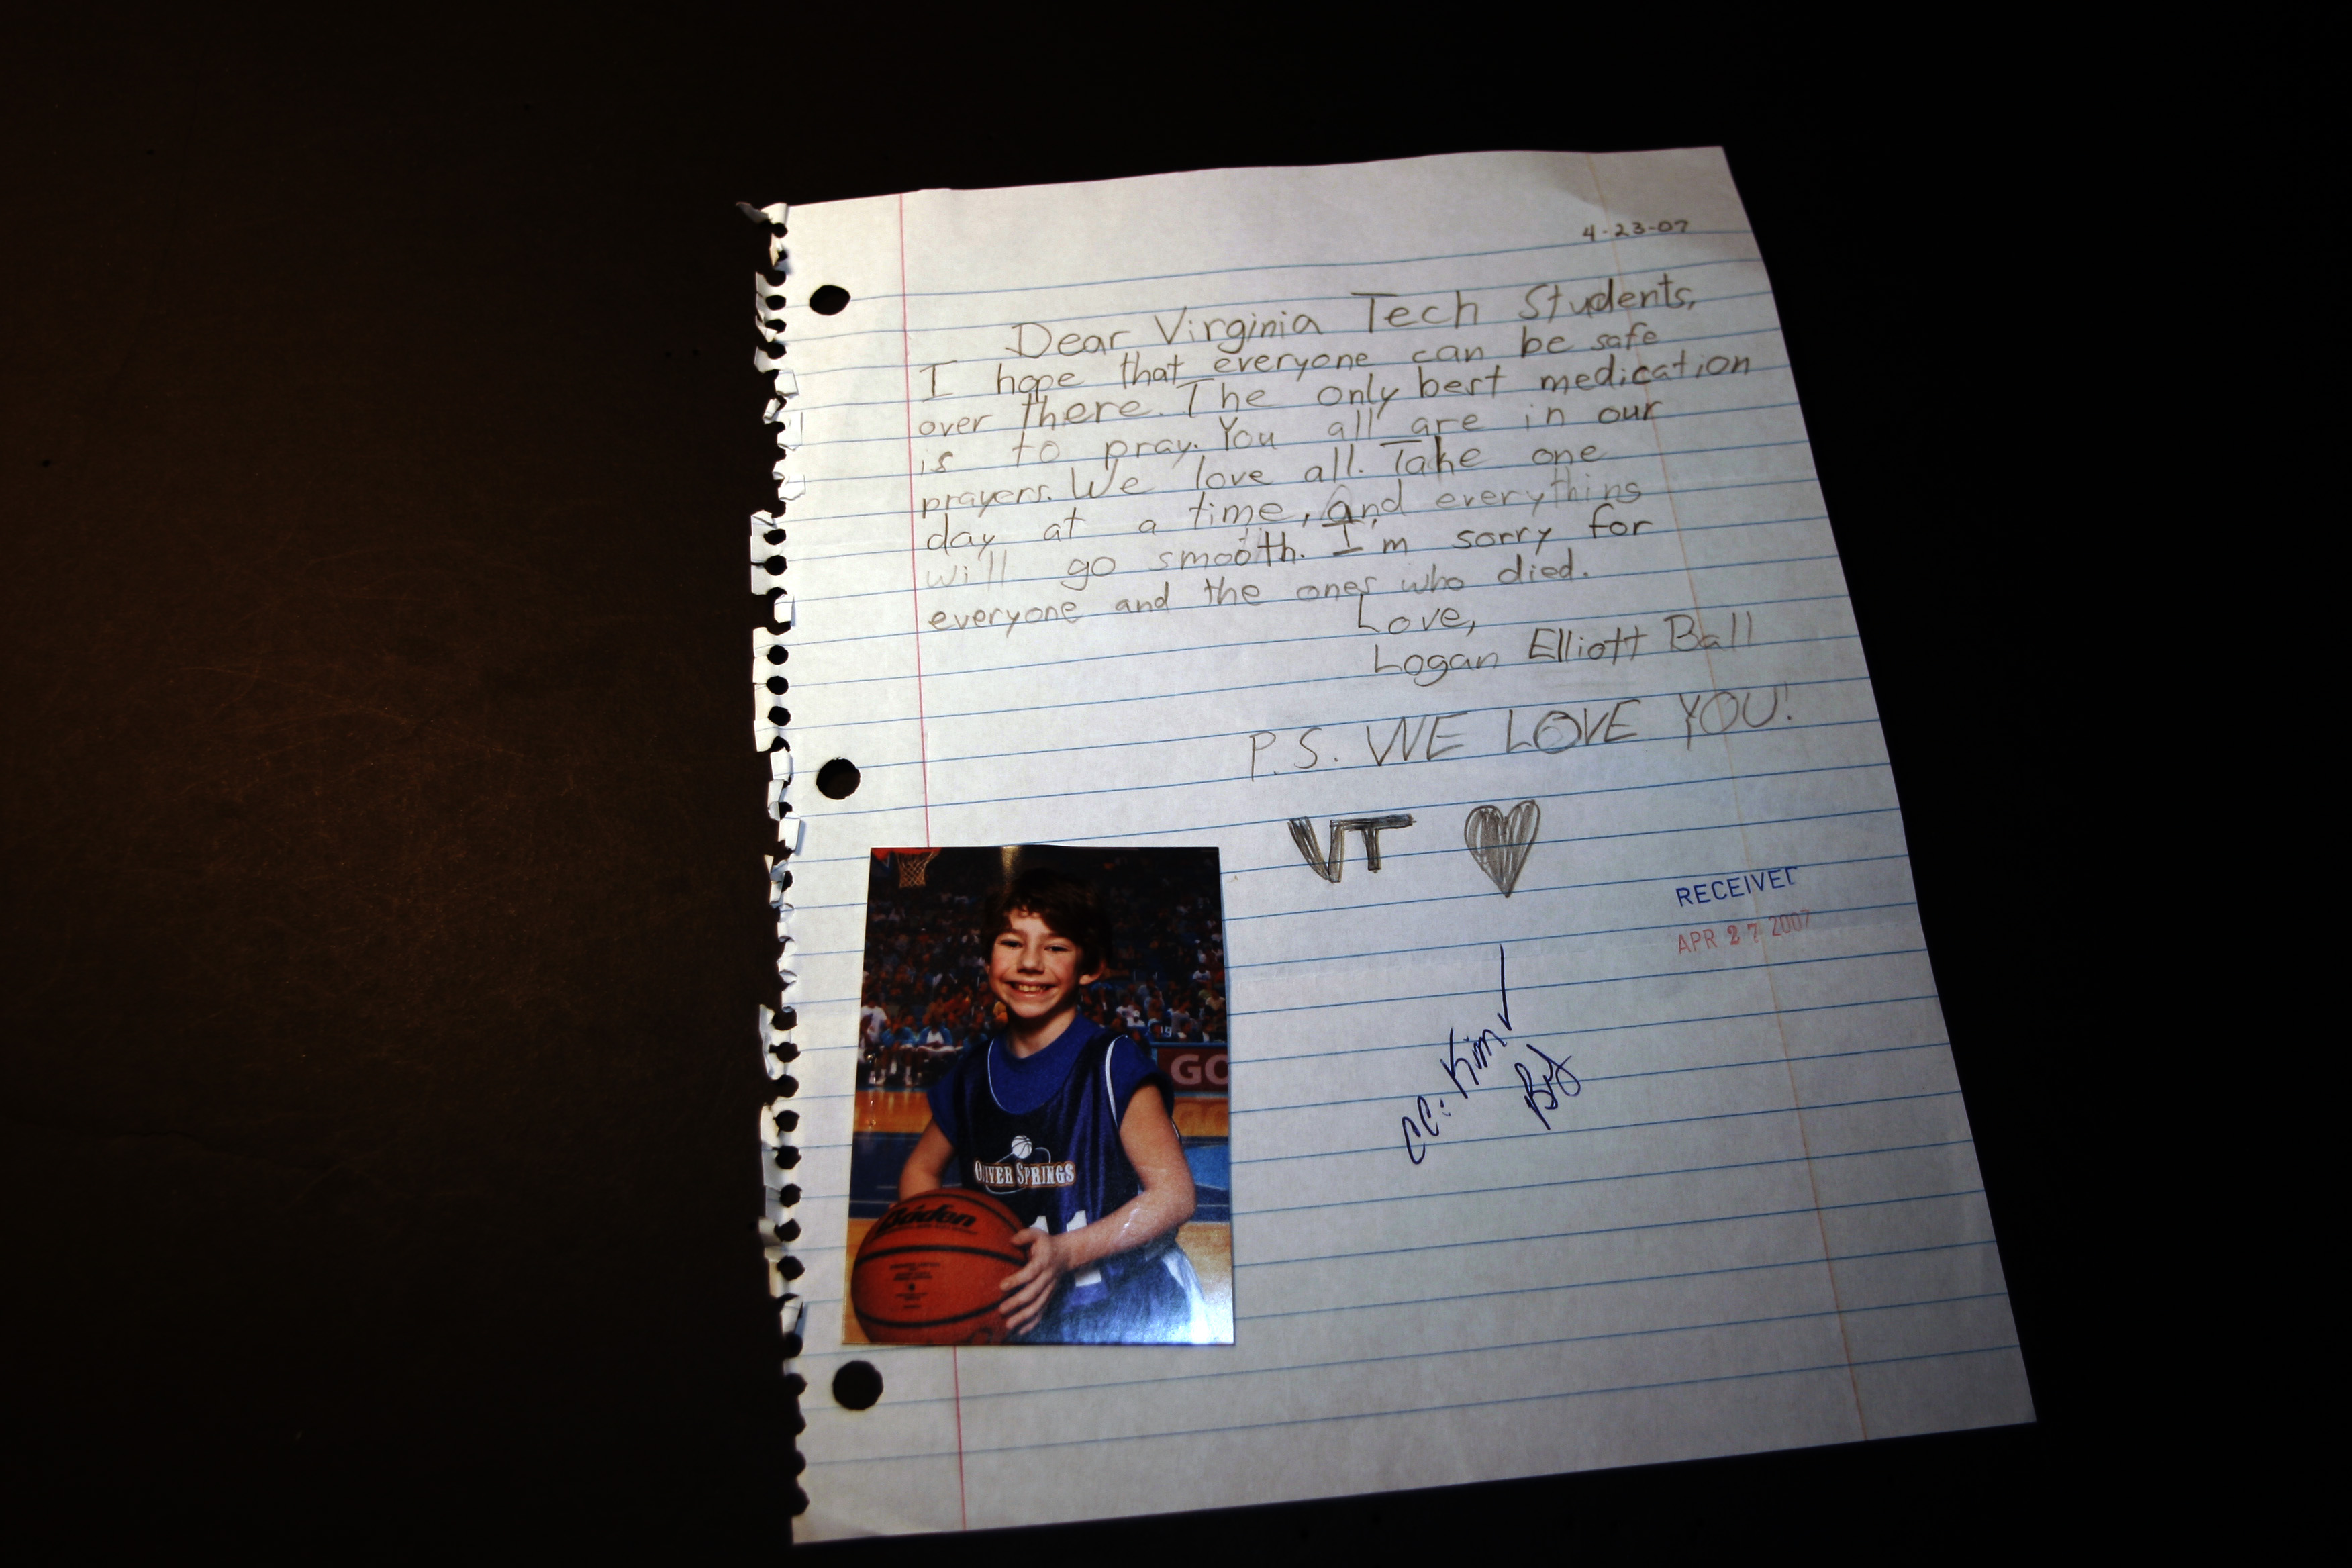 4-23-07
Dear Virginia Tech Students,
I hope that everyone can be safe
over there. The only best medication
is to pray. You all are in our
prayers. We love all. Take one
day at a time, and everything
will go smooth. I'm sorry for
everyone and the ones who died.
Love,
Logan Elliott Ball
P.S. WE LOVE YOU!
VT
RECEIVED
APR 27 2007
cc: Kim
GO
OLIVER SPRINGS
Baden
11